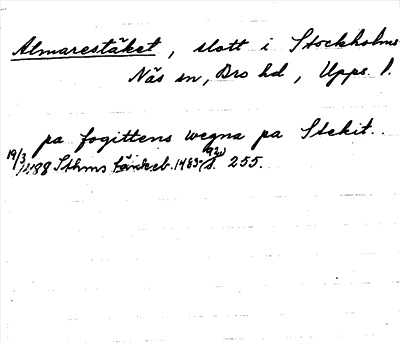 Almarestäket, slott i Stockholms
Näs sn, Bro hd, Upps. l.
pa fogittens wegna pa Stekit..
19/3 1488 Sthms tänkeb. 1483-92, s. 255.